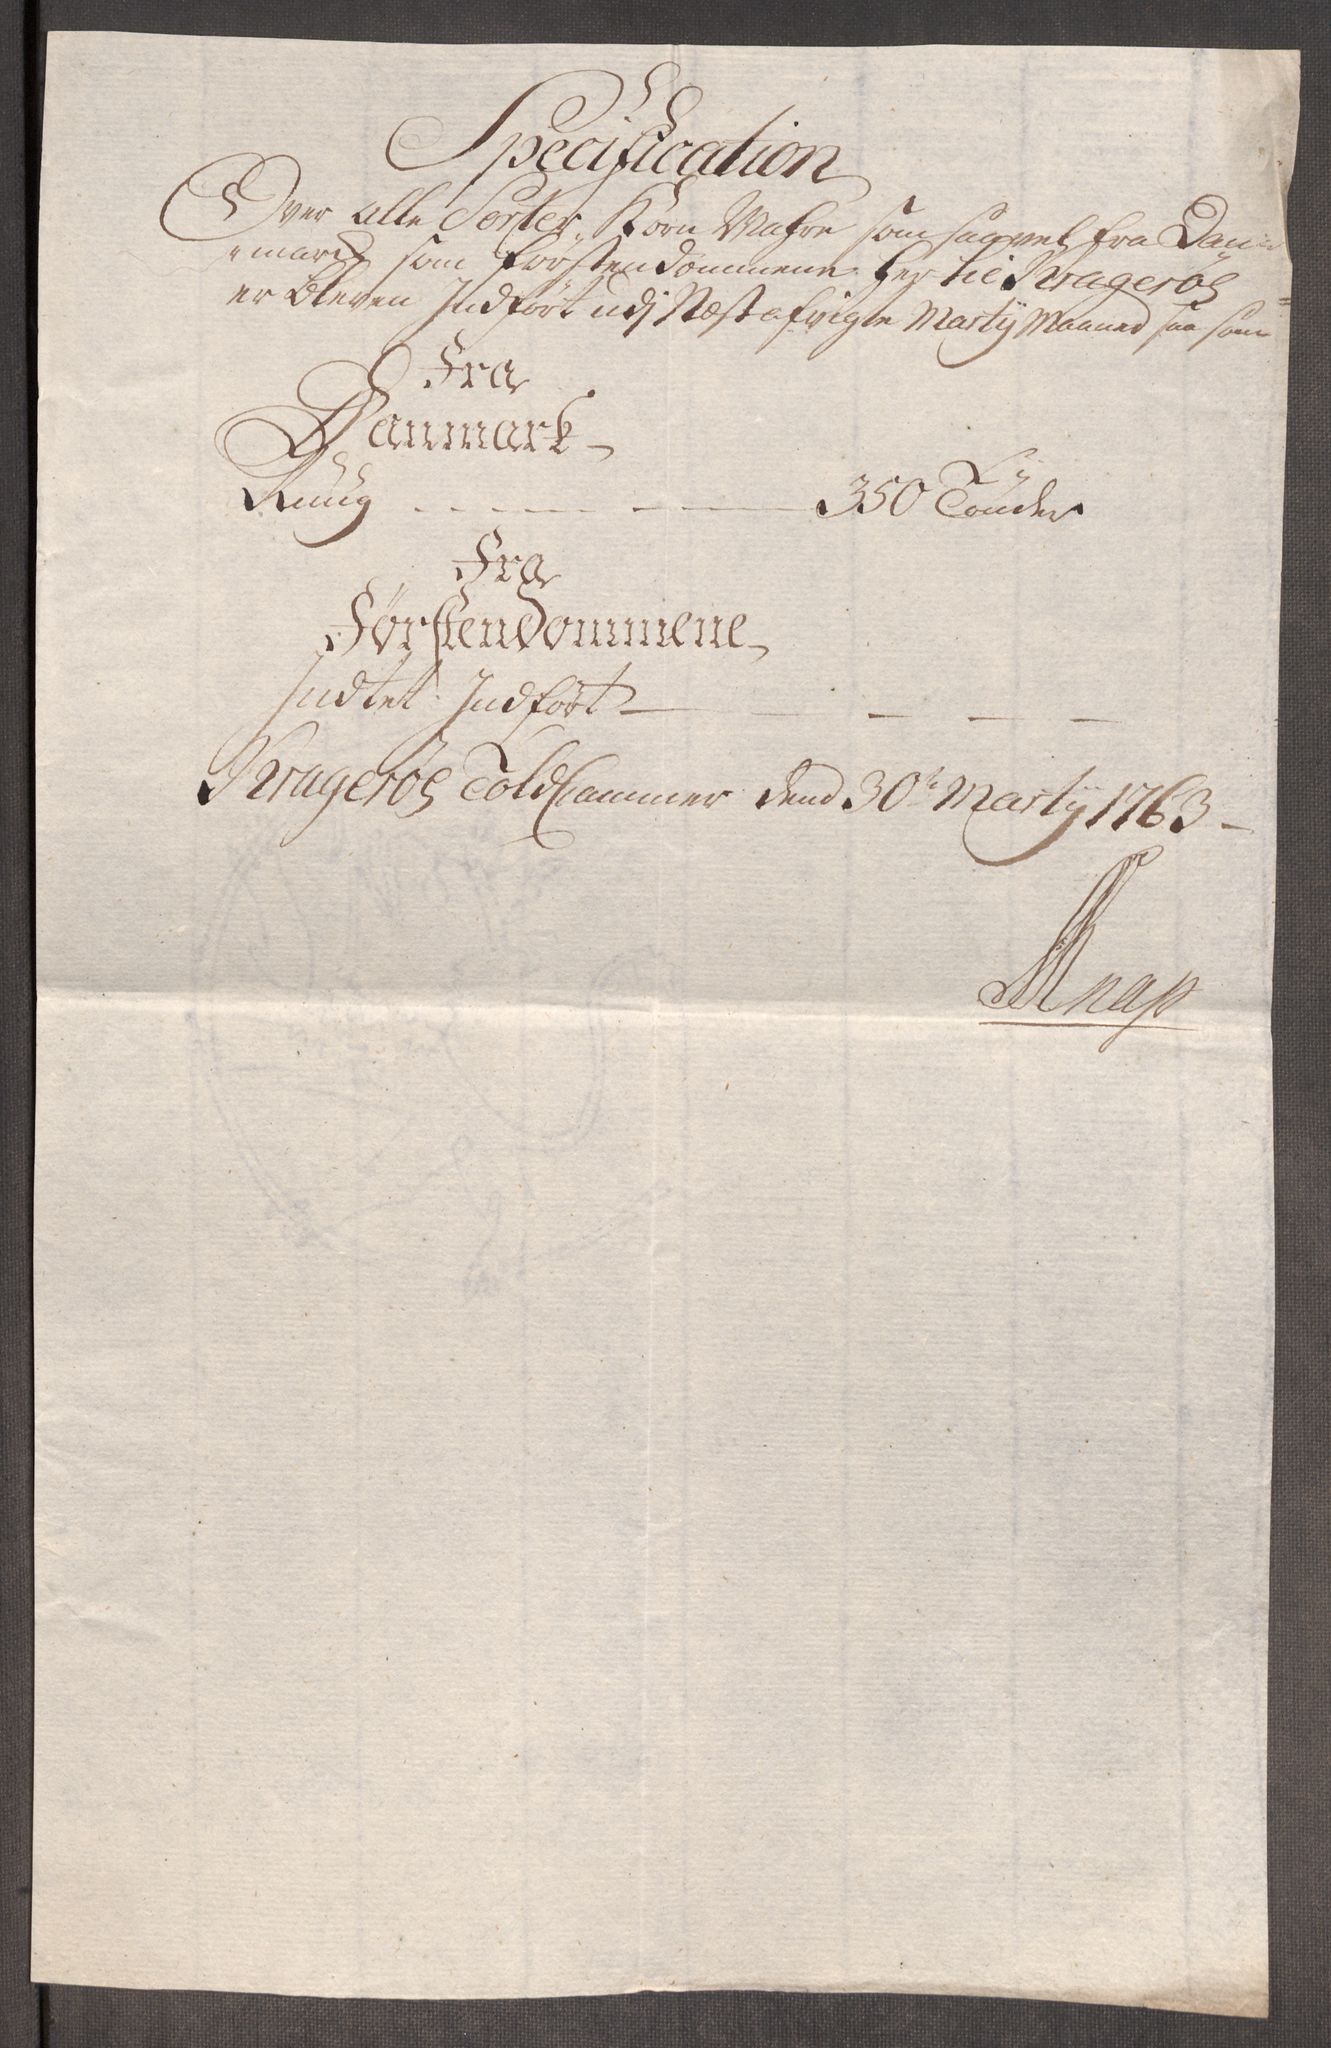 Specification
Over alle Sorter Korn Wahre som saavel fra Dan-
marck som Førstendommene her til Kragerøe
er bleven Indført udj Næst afvigte Martij Maaned saa som
Fra
Danmark
Ruug 350 Tønder
Fra
Førstendommene
Indtet Indført
Kragerøe ToldCammer dend 30t Martij 1763
Knap